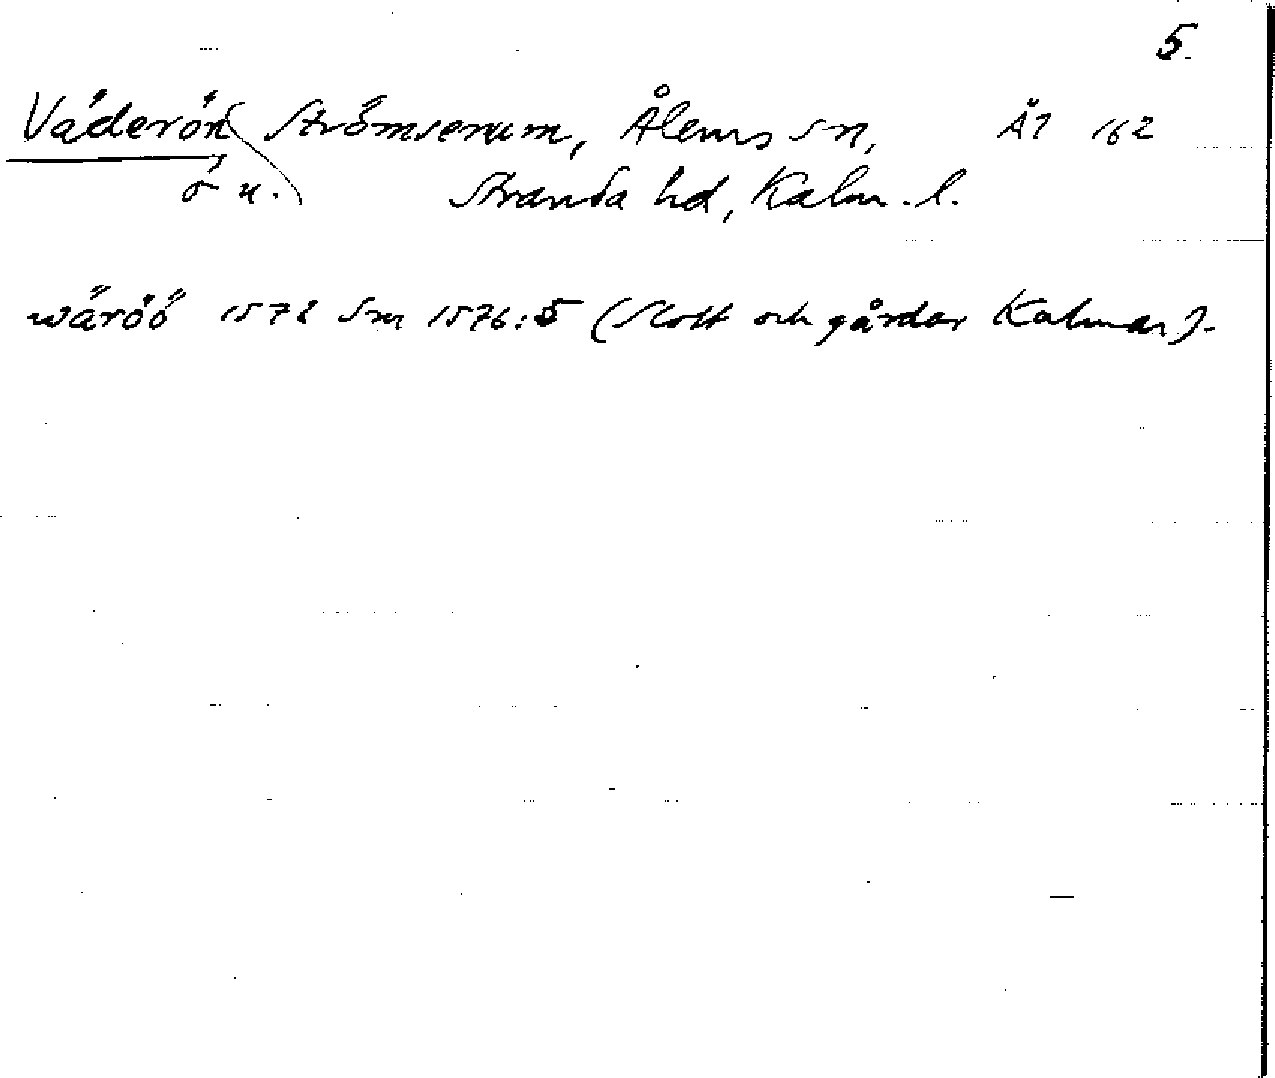 5.
Väderön Strömserum, Ålems sn, ÅI 162
ö u. Stranda hd, Kalm. l.
wäröö Sm 1576:5 (Slott och gårdar Kalmar).